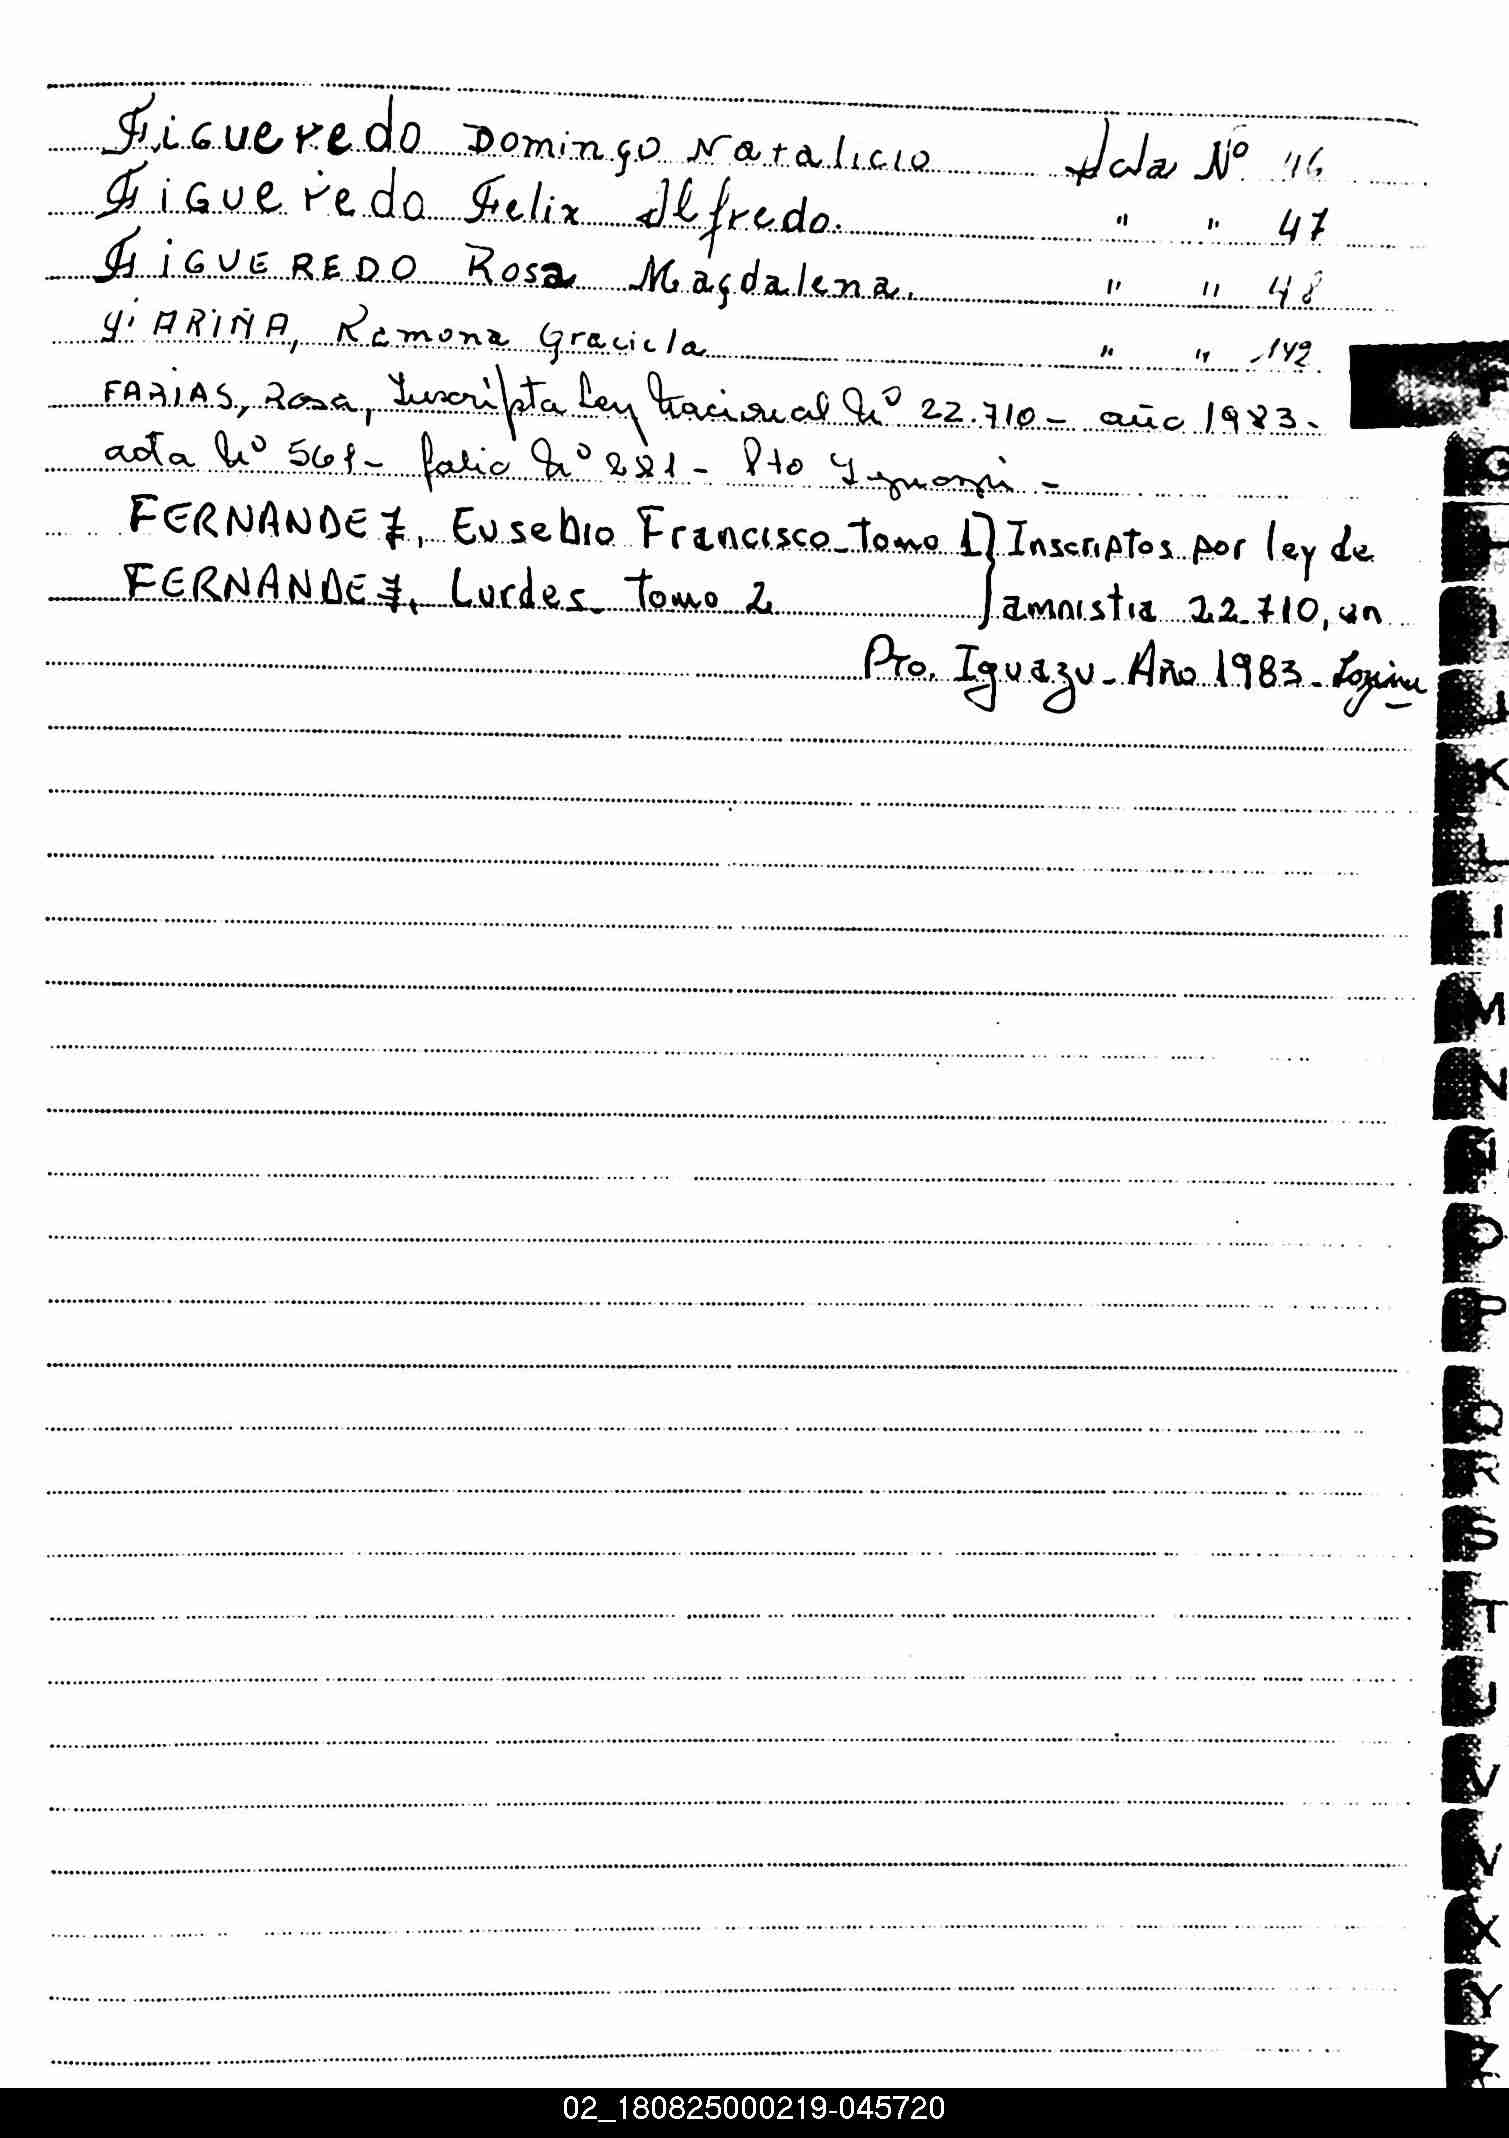 Figueredo Domingo Natalicio Acta Nº 46
Figueredo Felix Alfredo. " " 47
FIGUEREDO Rosa Magdalena. " " 48
FARIÑA, Ramona Graciela " " 142
FARIAS, Rosa, Inscripta Ley Nacional Nº 22.710 - año 1983 -
acta Nº 561 - folio Nº 281 - Pto Iguazú -
FERNANDEZ, Eusebio Francisco - Tomo 1 } Inscriptos por ley de
FERNANDEZ, Lurdes - Tomo 2 amnistia 22.710, en
Pto. Iguazu - Año 1983 -
F
G
H
I
J
K
L
Ll
M
N
Ñ
O
P
Q
R
S
T
U
V
W
X
Y
Z
02_180825000219-045720